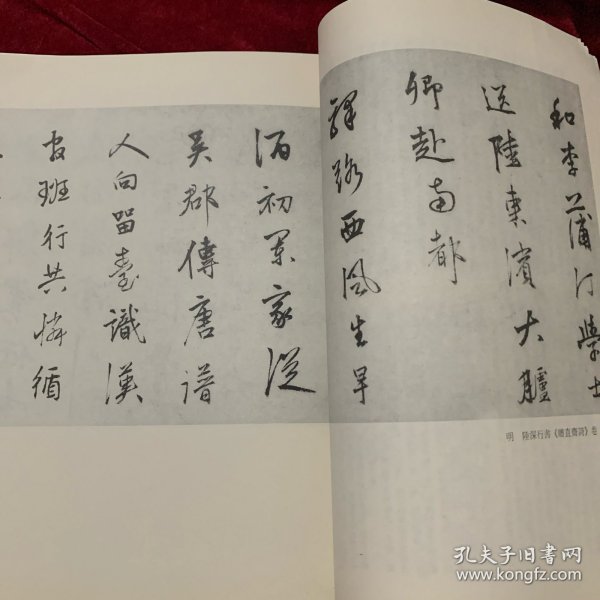 和李蒲汀學士
送陸東濱大臚
卿赴南都
驛路西風生早
酒初闌家從
吳郡傳唐譜
人向留臺識漢
官班行共憐循
明 陸深行書《贈直齋詩》卷
孔夫子旧书网
www.kongfz.com